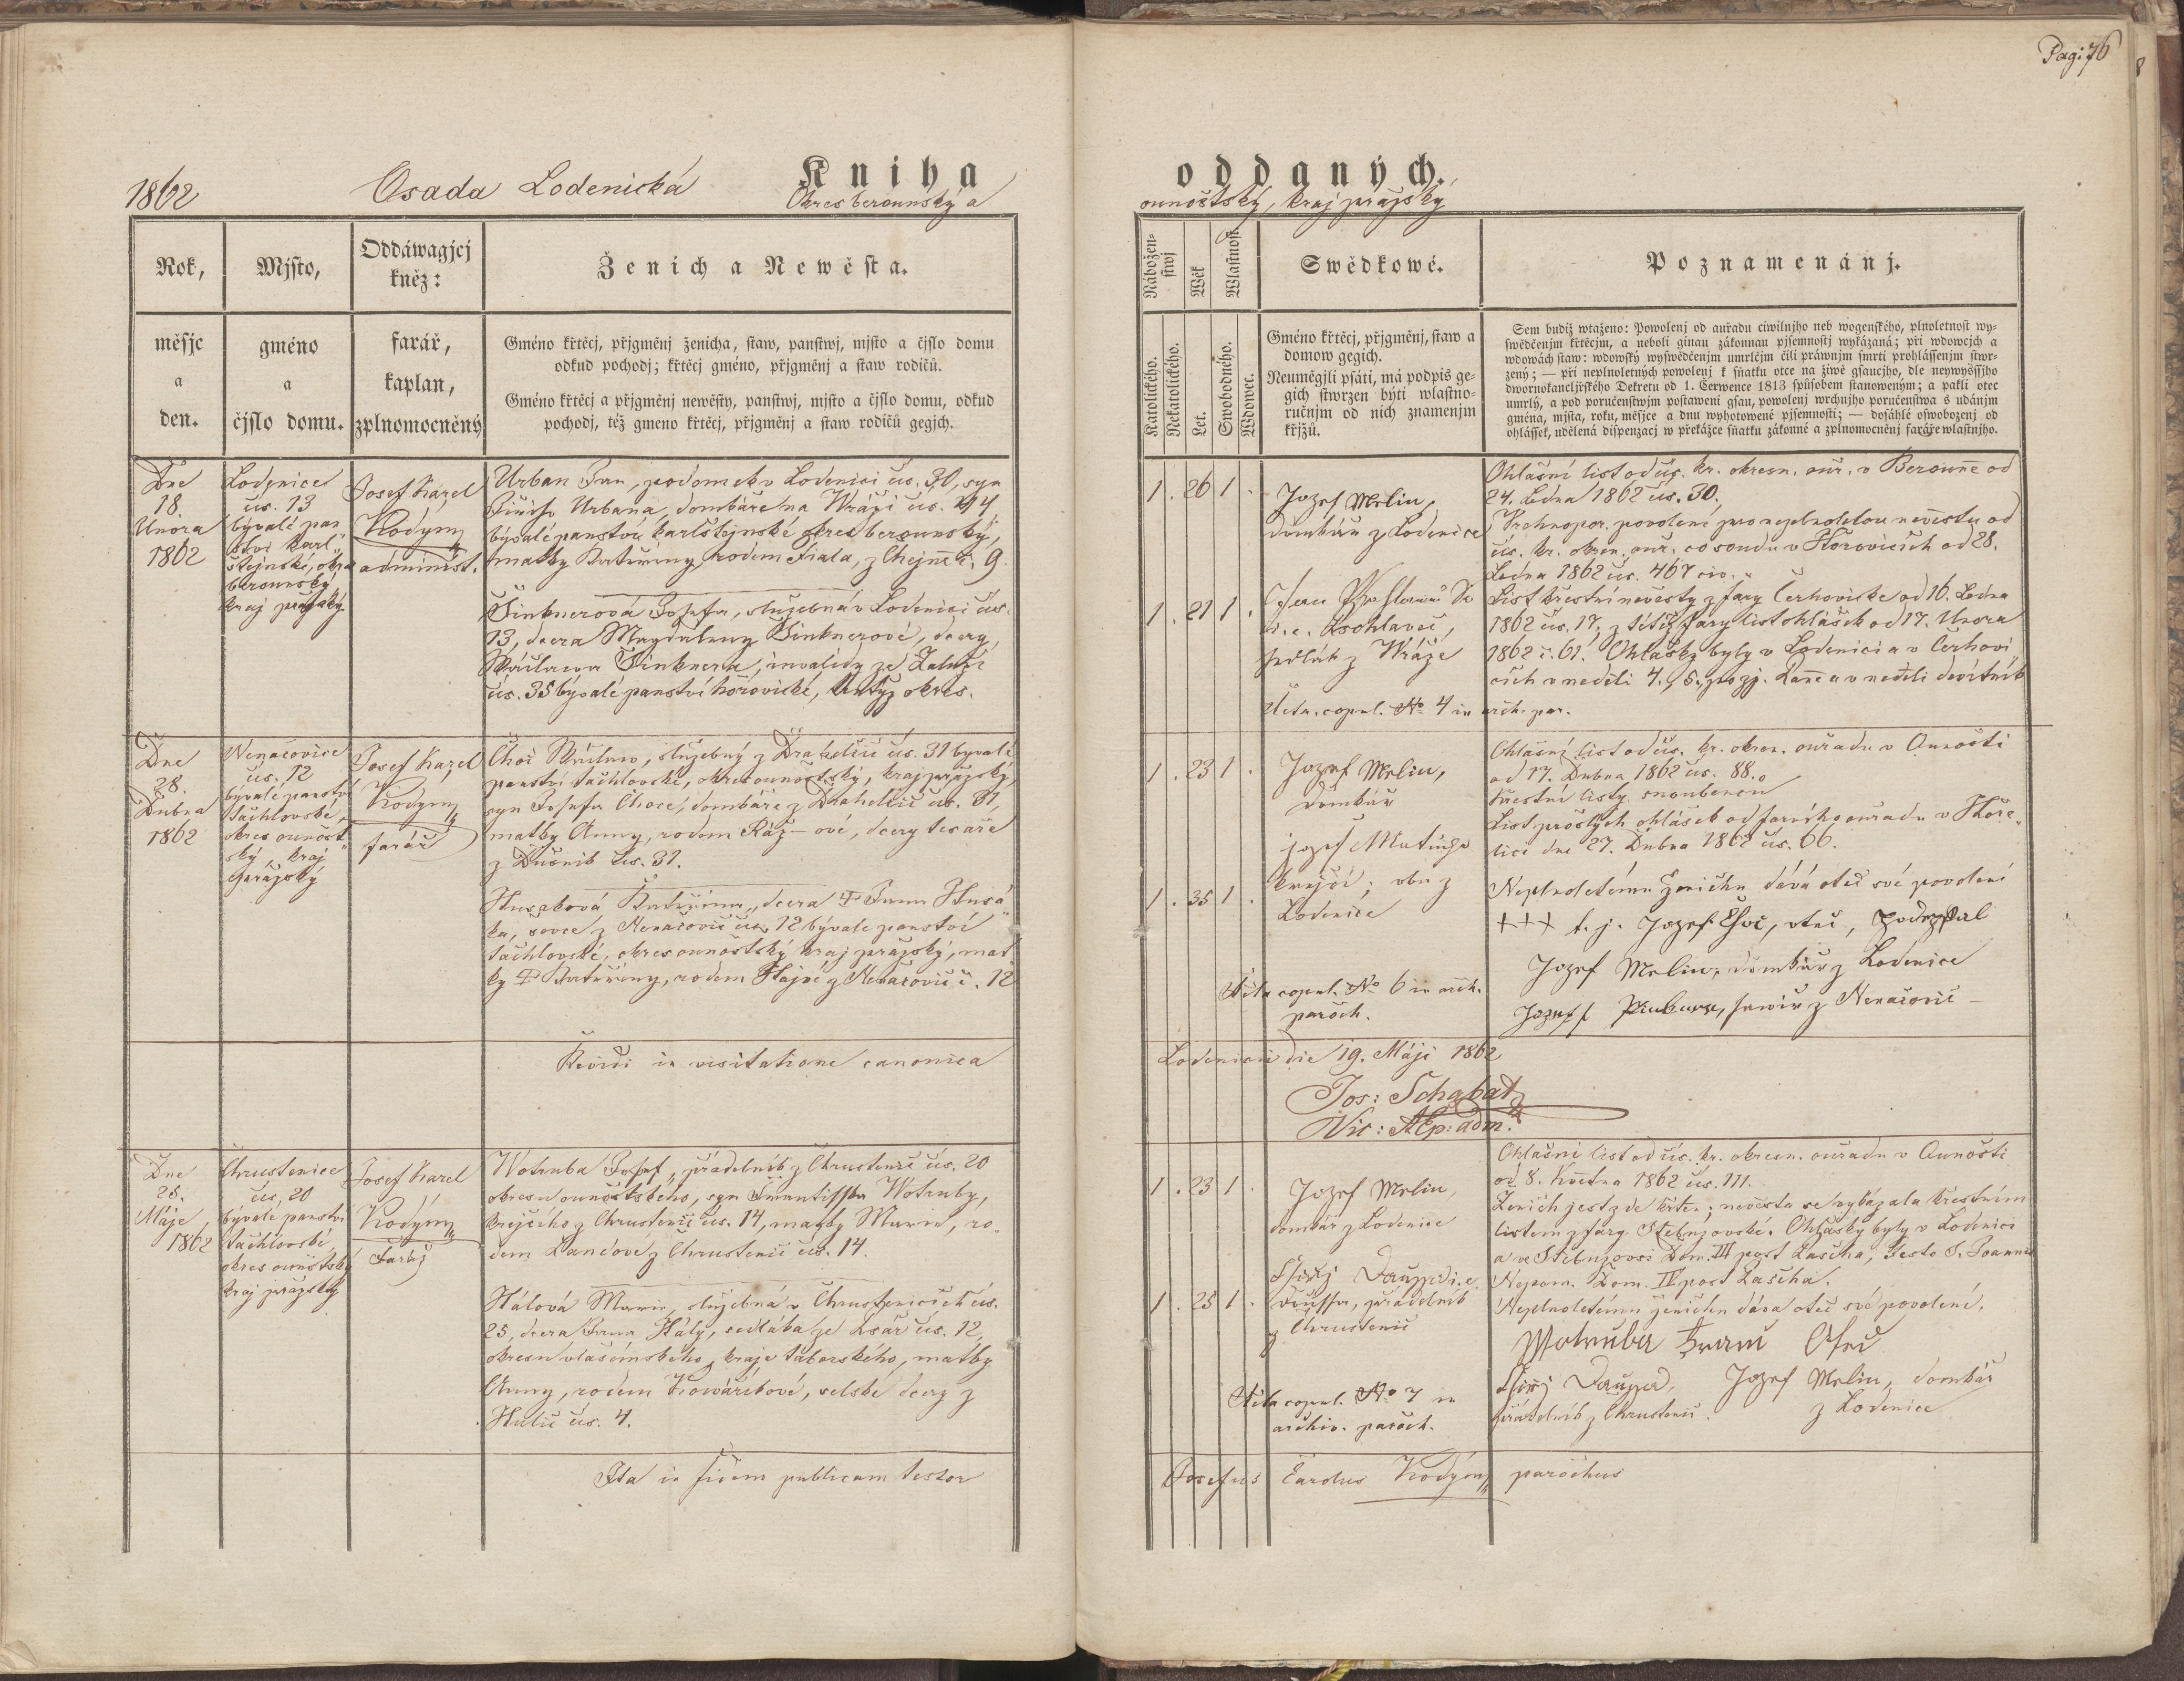 Pagi 76
Kniha
oddaných.
1862
Osada Lodenická
Okres berounský a
ounoštský, kraj pražský
Rok,
měsjc
a
den.
Mjsto,
gméno
a
čjslo domu.
Oddáwagjcj
kněz:
farář,
kaplan,
zplnomocněný
Ženich a Newěsta.
Gméno křtěcj, přjgměnj ženicha, staw, panstwj, mjsto a čjslo domu
odkud pochodj; křtěcj gméno, přjgměnj a staw rodičů.
Gméno křtěcj a přjgměnj newěsty, panstwj, mjsto a čjslo domu, odkud
pochodj, též gmeno křtěcj, přjgměnj a staw rodičů gegjch.
Nábožen-
stwj
Wěk
Wlastnost
Katolického.
Nekatolického.
Let.
Swobodného.
Wdowec.
Swědkowé.
Gméno křtěcj, přjgměnj, staw a
domow gegich.
Neumějgjli psáti, má podpis ge-
gich stwrzen býti wlastno-
ručnjm od nich znamenjm
křjžů.
Poznamenánj.
Sem budiž wtaženo: Powolenj od auřadu ciwilnjho neb wogenského, plnoletnost wy-
swědčenjm křtěcjm, a neboli ginau zákonnau pjsemnostj wykázaná; při wdowcjch a
wdowách staw: wdowský wyswědčenjm umrlčjm čili práwnjm smrti prohlássenjm stwr-
zený; — při neplnoletných powolenj k sňatku otce na žiwě gsaucjho, dle neywyššjho
dwornokancljřského Dekretu od 1. Čerwence 1813 způsobem stanoweným; a pakli otec
umrlý, a pod poručenstwjm postaweni gsau, powolenj wrchnjho poručenstwa s udánjm
gména, mjsta, roku, měsjce a dnu wyhotowené pjsemnosti; — dosáhlé oswobozenj od
ohlássek, udělená dispenzacj w překážce sňatku zákonné a zplnomocněnj faráře wlastnjho.
Dne
18.
Února
1862
Lodenice
čís. 13
bývalé pan
ství Karl-
štejnské, okres
berounský
kraj pražský
Josef Karel
Kodým
administ.
Urban Jan, podomek v Lodenici čís. 30, syn
Jiřího Urbana, domkáře na Vráži čís. 44,
bývalé panství karlštejnské okres berounský,
matky Kateřiny, rodem Fiala, z Chejnné č. 9.
Sinknerová Josefa, služebná v Lodenici čís.
13, dcera Magdaleny Sinknerové, dcery
Václava Sinknera, invalidy ze Zaluží
čís. 35 bývalé panství hořovické, tentýž okres.
1 . 26 1 .
Jozef Melin,
domkář z Lodenice
1 . 21 1 .
sedlák z Vráže
Acta copul. No 4 in arch. par.
Ohlašní list od čís. kr. okresn. ouř. v Berouně od
24. Ledna 1862 čís. 30.
Vrchnopor. povolení pro neplnoletou nevěstu od
čís. kr. okresn. ouř. co soudu v Hořovicích od 28.
Ledna 1862 čís. 467 civ.
List křestní nevěsty z fary Čerhovické od 16. Ledna
1862 čís. 17, z též fary list ohlášek od 17. Února
1862 č. 61. Ohlášky byly v Lodenici a v Čerhovi-
cích v neděli 4., 5. po zj. Páně a v neděli devítník
Dne
28.
Dubna
1862
Nenačovice
čís. 12
bývalé panství
tachlovské,
okres ounošt-
ský, kraj
pražský
Josef Karel
Kodým
farář
Choc Václav, služebný z Drahelčic čís. 31 bývalé
panství tachlovské, okres ounoštský, kraj pražský,
syn Josefa Choce, domkáře z Drahelčic čís. 31,
matky Anny, rodem Ráž-ové, dcery tesaře
z Dušnik čís. 31.
Husáková Kateřina, dcera † Jana Husá-
ka, ševce z Nenačovic čís. 12 bývalé panství
tachlovské, okres ounoštský kraj pražský, mat-
ky † Kateřiny, rodem Hájné z Nenačovic č. 12
1 . 23 1 .
Jozef Melin,
domkář
1 . 35 1 .
jozef Matuška
krejčí; oba z
Lodenice
Acta copul. No 6 in arch.
paroch.
Ohlašní list od čís. kr. okresn. ouřadu v Ounošti
od 17. Dubna 1862 čís. 88.
Křestní listy snoubenců
List prošlých ohlášek od farního ouřadu v Hoře-
lici dne 27. Dubna 1862 čís. 66.
Neplnoletému ženichu dává otec své povolení
+++ t. j. Jozef Choc, otec, podepsal
Jozef Melin, domkář z Lodenice
Revidi in visitatione canonica
Lodenicii die 19. Maji 1862
Jos: Schabat
Vic: Aep: adm.
Dne
25.
Máje
1862
Chrustenice
čís. 20
bývalé panství
tachlovské
okres ounoštský
kraj pražský
Josef Karel
Kodým
Farář
Wotruba Josef, přadelník z Chrustenic čís. 20
okresu ounoštského, syn Františka Wotruby,
krejčího z Chrustenic čís. 14, matky Marie, ro-
dem Lancové z Chrustenic čís. 14.
Hálová Marie, služebná v Chrustenicích čís.
25, dcera Jana Hály, sedláka ze Lsář čís. 12,
okresu vlašímského, kraje táborského, matky
Anny, rodem Kovaříkové, selské dcery z
Hulic čís. 4.
1 . 23 1 .
Jozef Melin,
domkář z Lodenice
1 . 25 1 .
přadelník
z Chrustenic
Acta copul. No 7 in
archiv. paroch.
Ohlašní list od čís. kr. okresn. ouřadu v Ounošti
od 8. Května 1862 čís. 111.
Ženich jest zde křtěn; nevěsta se vykázala křestním
listem z fary. Ohlášky byly v Lodenici
Dom. III post Pascha, Festo S. Joannis
Nepom. Dom. IV post Pascha.
Neplnoletému ženichu dává otec své povolení.
Wotruba Franc Otec
Jozef Melin, domkář
z Lodenice
přadelník z Chrustenic.
Ita in fidem publicam testor
Josefus Carolus Kodým parochus